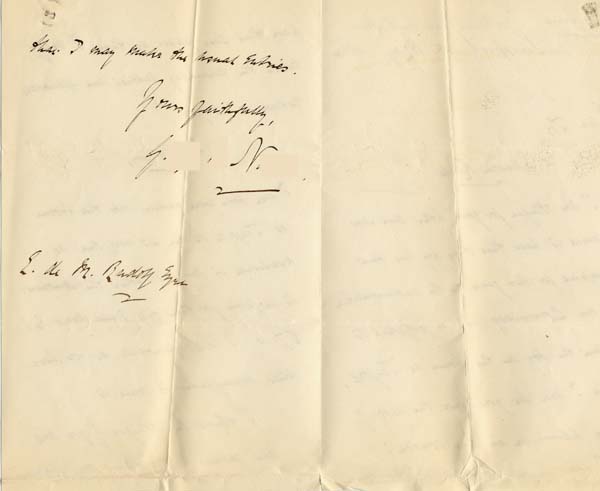 that I may make the usual Entries.
Yours faithfully,
G. , N. .
E. de M. Rudolf Esqre